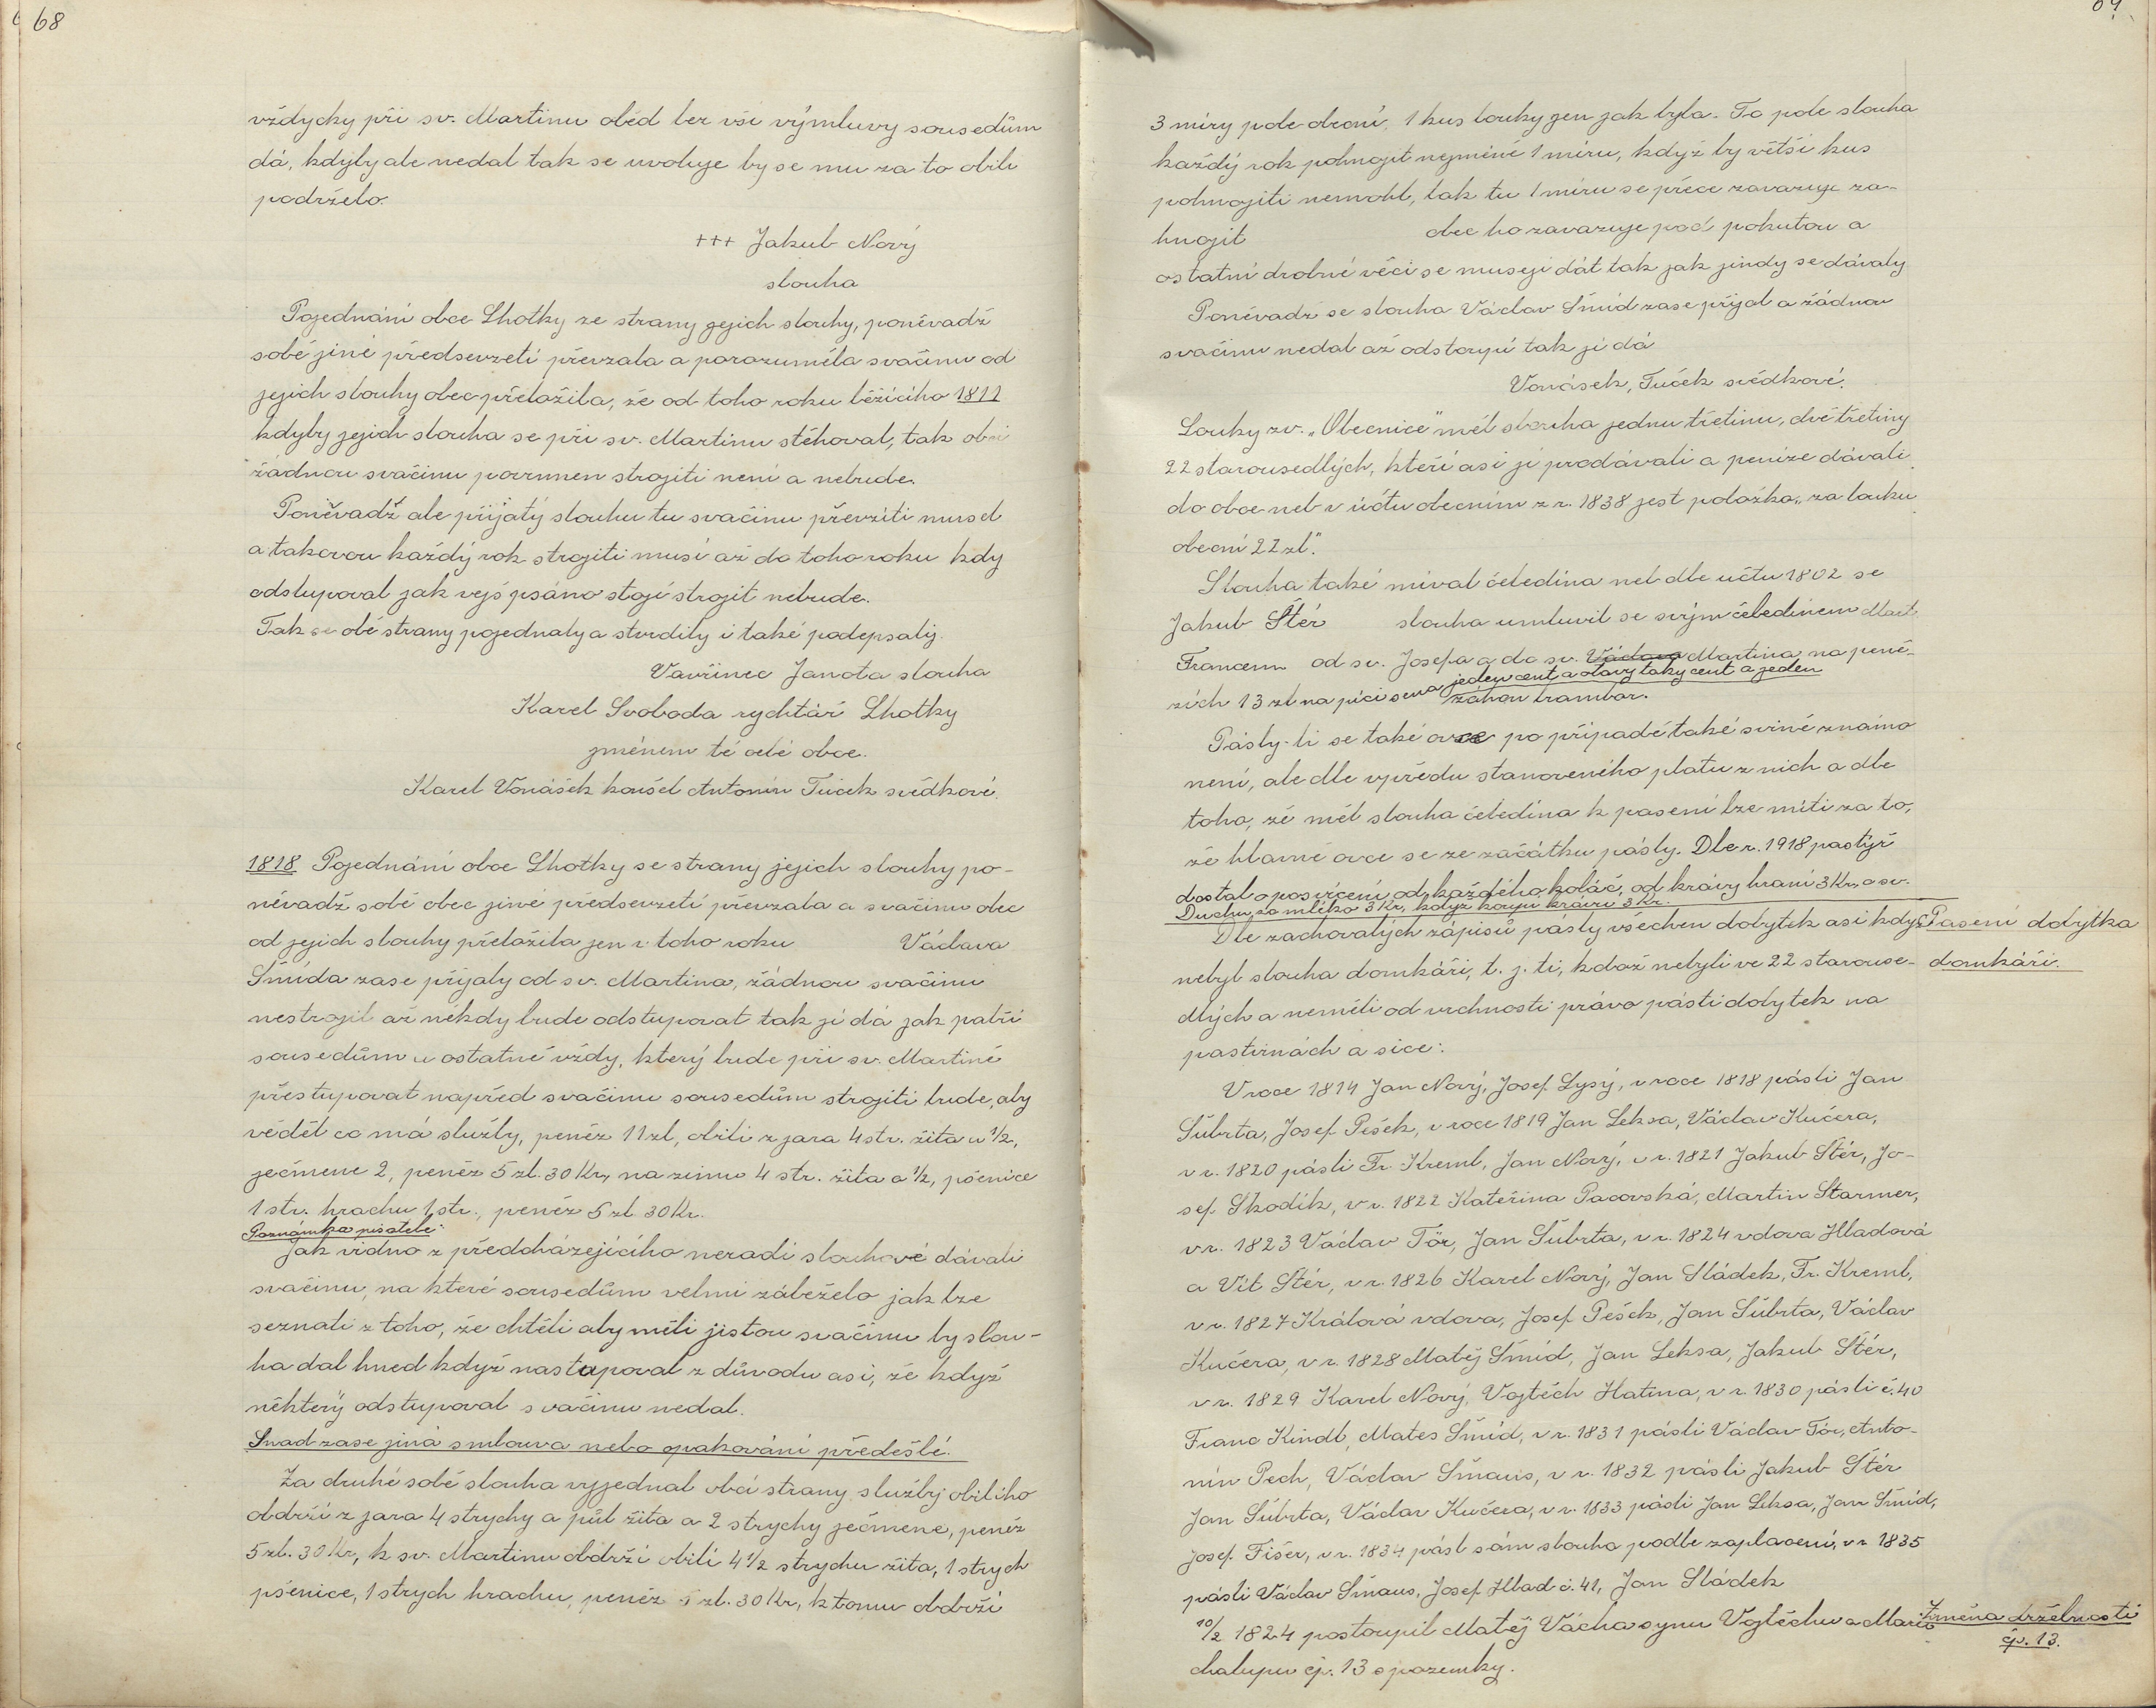 68
vždycky při sv. Martinu oběd bez vší výmluvy sousedům
dá, kdyby ale nedal tak se uvoluje by se mu za to obilí
podrželo.
+++ Jakub Nový
slouha
Pojednání obce Lhotky ze strany gejich slouhy, poněvadž
sobě jiné předsevzetí převzala a porozuměla svačinu od
jejich slouhy obec přeložila, že od toho roku běžícího 1811
kdyby jejich slouha se při sv. Martinu stěhoval, tak obci
žádnou svačinu povinnen strojiti není a nebude.
Poněvadž ale přijatý slouhu tu svačinu převzíti musel
a takovou každý rok strojiti musí až do toho roku kdy
odstupoval jak vejš psáno stojí strojit nebude.
Tak se obě strany pojednaly a stvrdily i také podepsaly.
Vavřinec Janota slouha
Karel Svoboda rychtář Lhotky
jménem té celé obce.
Karel Vonášek konšel Antonín Tůček svědkové.
1818 Pojednání obce Lhotky se strany jejich slouhy po-
něvadž sobě obec jiné předsevzetí převzala a svačinu obec
od jejich slouhy přeložila jen v toho roku Václava
Šmída zase přijaly od sv. Martina, žádnou svačinu
nestrojil až někdy bude odstupovat tak jí dá jak patří
sousedům u ostatně vždy, který bude při sv. Martině
přestupovat napřed svačinu sousedům strojiti bude, aby
věděl co má služby, peněz 11 zl, obilí z jara 4 str. žita u ½,
ječmene 2, peněz 5 zl. 30 Kr, na zimu 4 str. žita a ½, pšenice
1 str. hrachu 1 str., peněz 5 zl 30 Kr.
Poznámka pisatele:
Jak vidno z předcházejícího neradi slouhové dávali
svačinu, na které sousedům velmi záleželo jak lze
seznati z toho, že chtěli aby měli jistou svačinu by slou-
ha dal hned když nastupoval z důvodu asi, že když
některý odstupoval svačinu nedal.
Snad zase jiná smlouva nebo opakování předešlé.
Za druhé sobě slouha vyjednal obci strany služby obilího
obdrží z jara 4 strychy a půl žita a 2 strychy ječmene, peněz
5 zl. 30 Kr, k sv. Martinu obdrží obilí 4½ strychu žita, 1 strych
pšenice, 1 strych hrachu, peněz 5 zl. 30 Kr, k tomu obdrží
3 míry pole obecní, 1 kus louky gen gak byla. To pole slouha
každý rok pohnojit nejméně 1 míru, když by větší kus
pohnojiti nemohl, tak tu 1 míru se přece zavazuje za-
hnojit obec ho zavazuje pod pokutou a
ostatní drobné věci se museji dát tak jak jindy se dávaly
Poněvadž se slouha Václav Šmíd zase přijal a žádnou
svačinu nedal až odstoupí tak ji dá
Vonásek, Tuček svědkové.
Louky zv. „Obecnice" měl slouha jednu třetinu, dvě třetiny
22 starousedlých, kteří asi ji prodávali a peníze dávali
do obce neb v účtu obecním z r. 1838 jest položka „za louku
obecní 22 zl".
Slouha také míval čeledína neb dle účtu 1802 se
Jakub Štér slouha umluvil se svým čeledínem Mart.
Francem od sv. Josefa a do sv. Václava Martina na peně-
zích 13 zl na píci sena jeden cent a otavy taky cent a jeden
záhon brambor.
Pásly-li se také ovce po případě také svině známo
není, ale dle vpředu stanoveného platu z nich a dle
toho, že měl slouha čeledína k pasení lze míti za to,
že hlavně ovce se ze začátku pásly. Dle r. 1918 pastýř
dostal o posvícení od každého koláč, od krávy hraní 3 Kr, o sv.
Duchu za mléko 3 Kr, když koupí krávu 3 Kr.
Dle zachovalých zápisů pásly všechen dobytek asi když
Pasení dobytka
nebyl slouha domkáři, t. j. ti, kdož nebyli ve 22 starouse-
domkáři.
dlých a neměli od vrchnosti právo pásti dobytek na
pastvinách a sice:
V roce 1814 Jan Nový, Josef Lysý, v roce 1818 pásli Jan
Šubrta, Josef Pešek, v roce 1819 Jan Leksa, Václav Kučera,
v r. 1820 pásli Fr. Kreml, Jan Nový, v r. 1821 Jakub Štér, Jo-
sef Skodík, v r. 1822 Kateřina Pacovská, Martin Starmer,
v r. 1823 Václav Tör, Jan Šubrta, v r. 1824 vdova Hladová
a Vít Štér, v r. 1826 Karel Nový, Jan Sládek, Fr. Kreml,
v r. 1827 Králová vdova, Josef Pešek, Jan Šubrta, Václav
Kučera, v r. 1828 Matěj Šmíd, Jan Leksa, Jakub Štér,
v r. 1829 Karel Nový, Vojtěch Hatina, v r. 1830 pásli č. 40
Franc Kindl, Mates Šmíd, v r. 1831 pásli Václav Tör, Anto-
nín Pech, Václav Šmaus, v r. 1832 pásli Jakub Štér
Jan Šubrta, Václav Kučera, v r. 1833 pásli Jan Leksa, Jan Šmíd,
Josef Fišer, v r. 1834 pásl sám slouha podle zaplacení, v r 1835
pásli Václav Šmaus, Josef Hlad č. 41, Jan Sládek
10/2 1824 postoupil Matěj Vácha synu Vojtěchu a Marii
Změna držebnosti
čp. 13.
chalupu čp. 13 s pozemky.